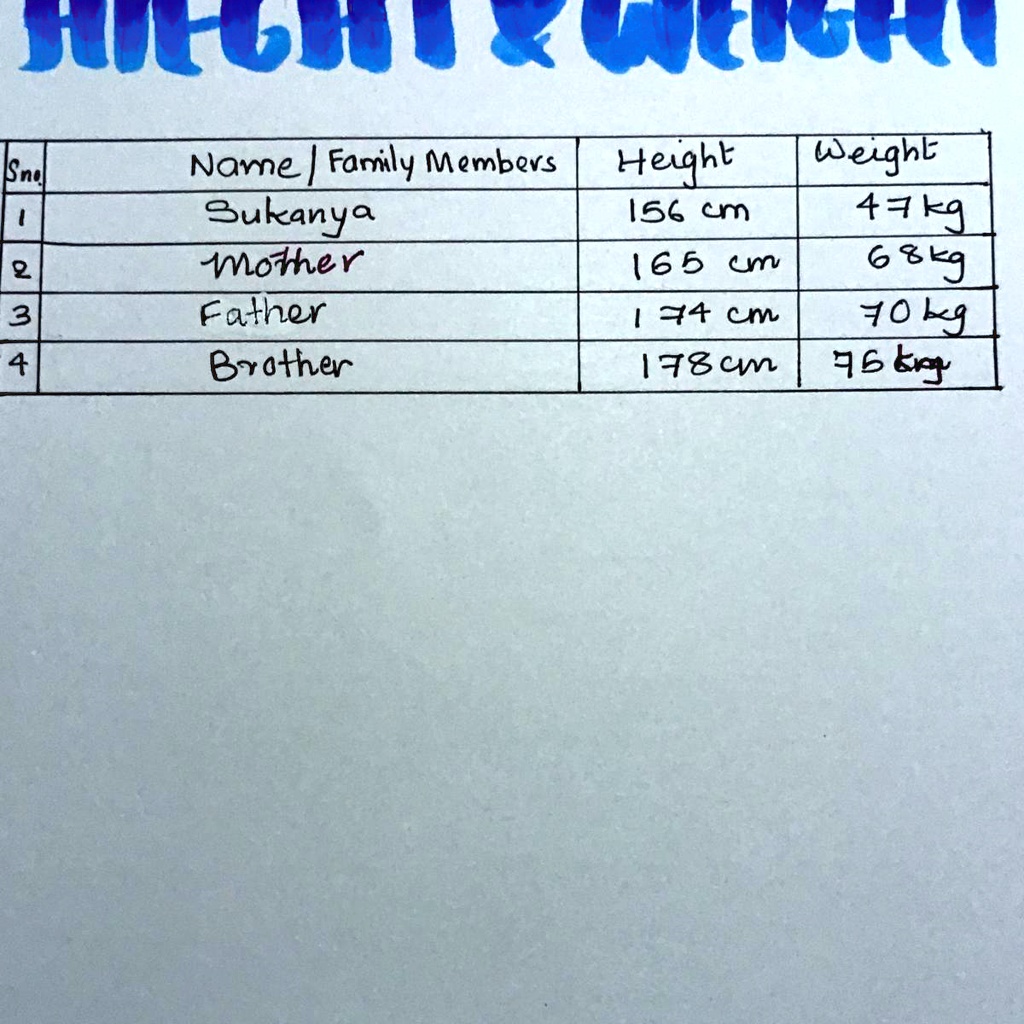 HEIGHT & WEIGHT
Sno. Name / Family Members Height Weight
1 Sukanya 156 cm 47 kg
2 Mother 165 cm 68 kg
3 Father 174 cm 70 kg
4 Brother 178 cm 75 kg